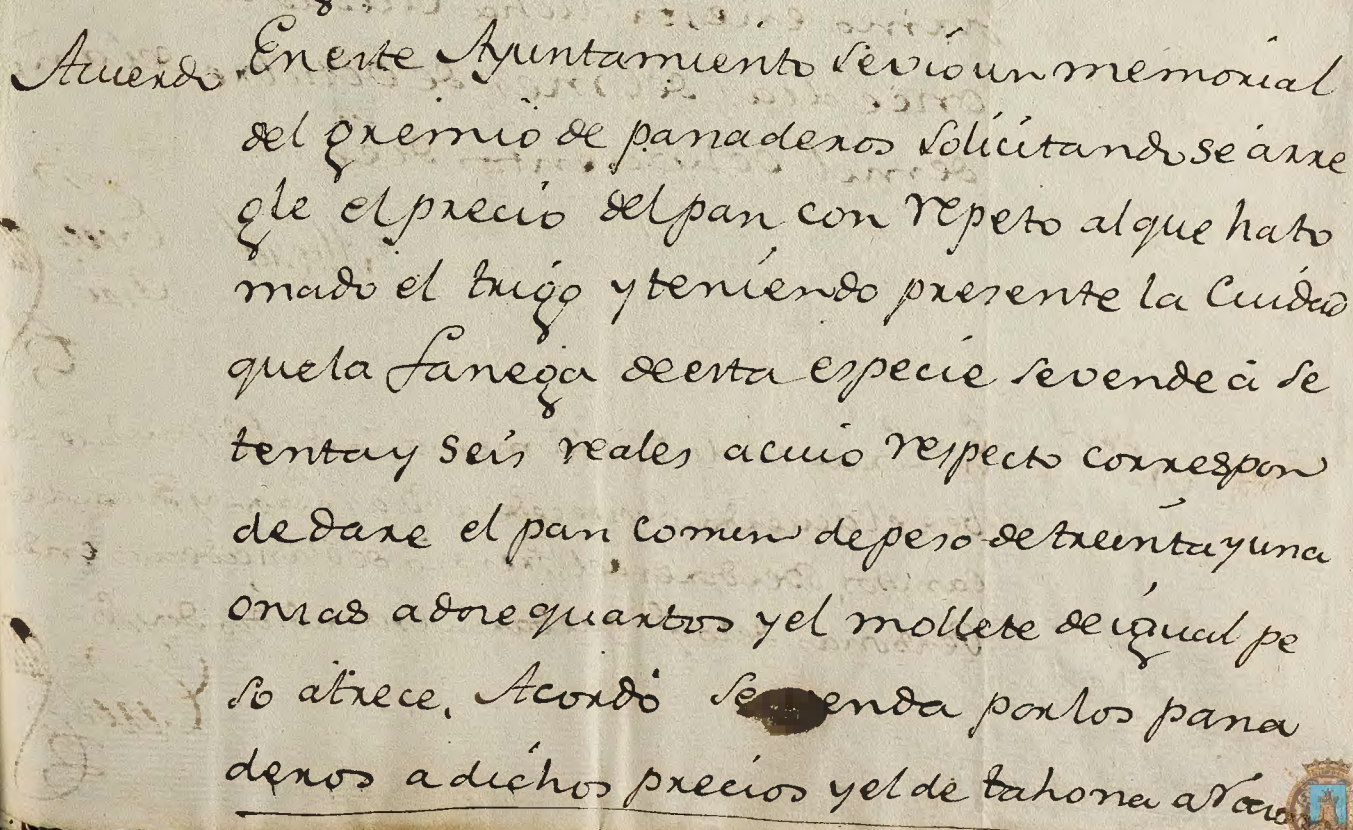 Acuerdo En este Ayuntamiento se vio un memorial
del gremio de panaderos solicitando se arre
gle el precio del pan con repeto al que ha to
mado el trigo y teniendo presente la Ciudad
que la fanega de esta especie se vende á se
tenta y seis reales a cuio respecto correspon
de darse el pan comun de peso de treinta y una
onzas a doze quartos y el mollete de igual pe
so a trece, Acordó se venda por los pana
deros a dichos precios y el de tahona a